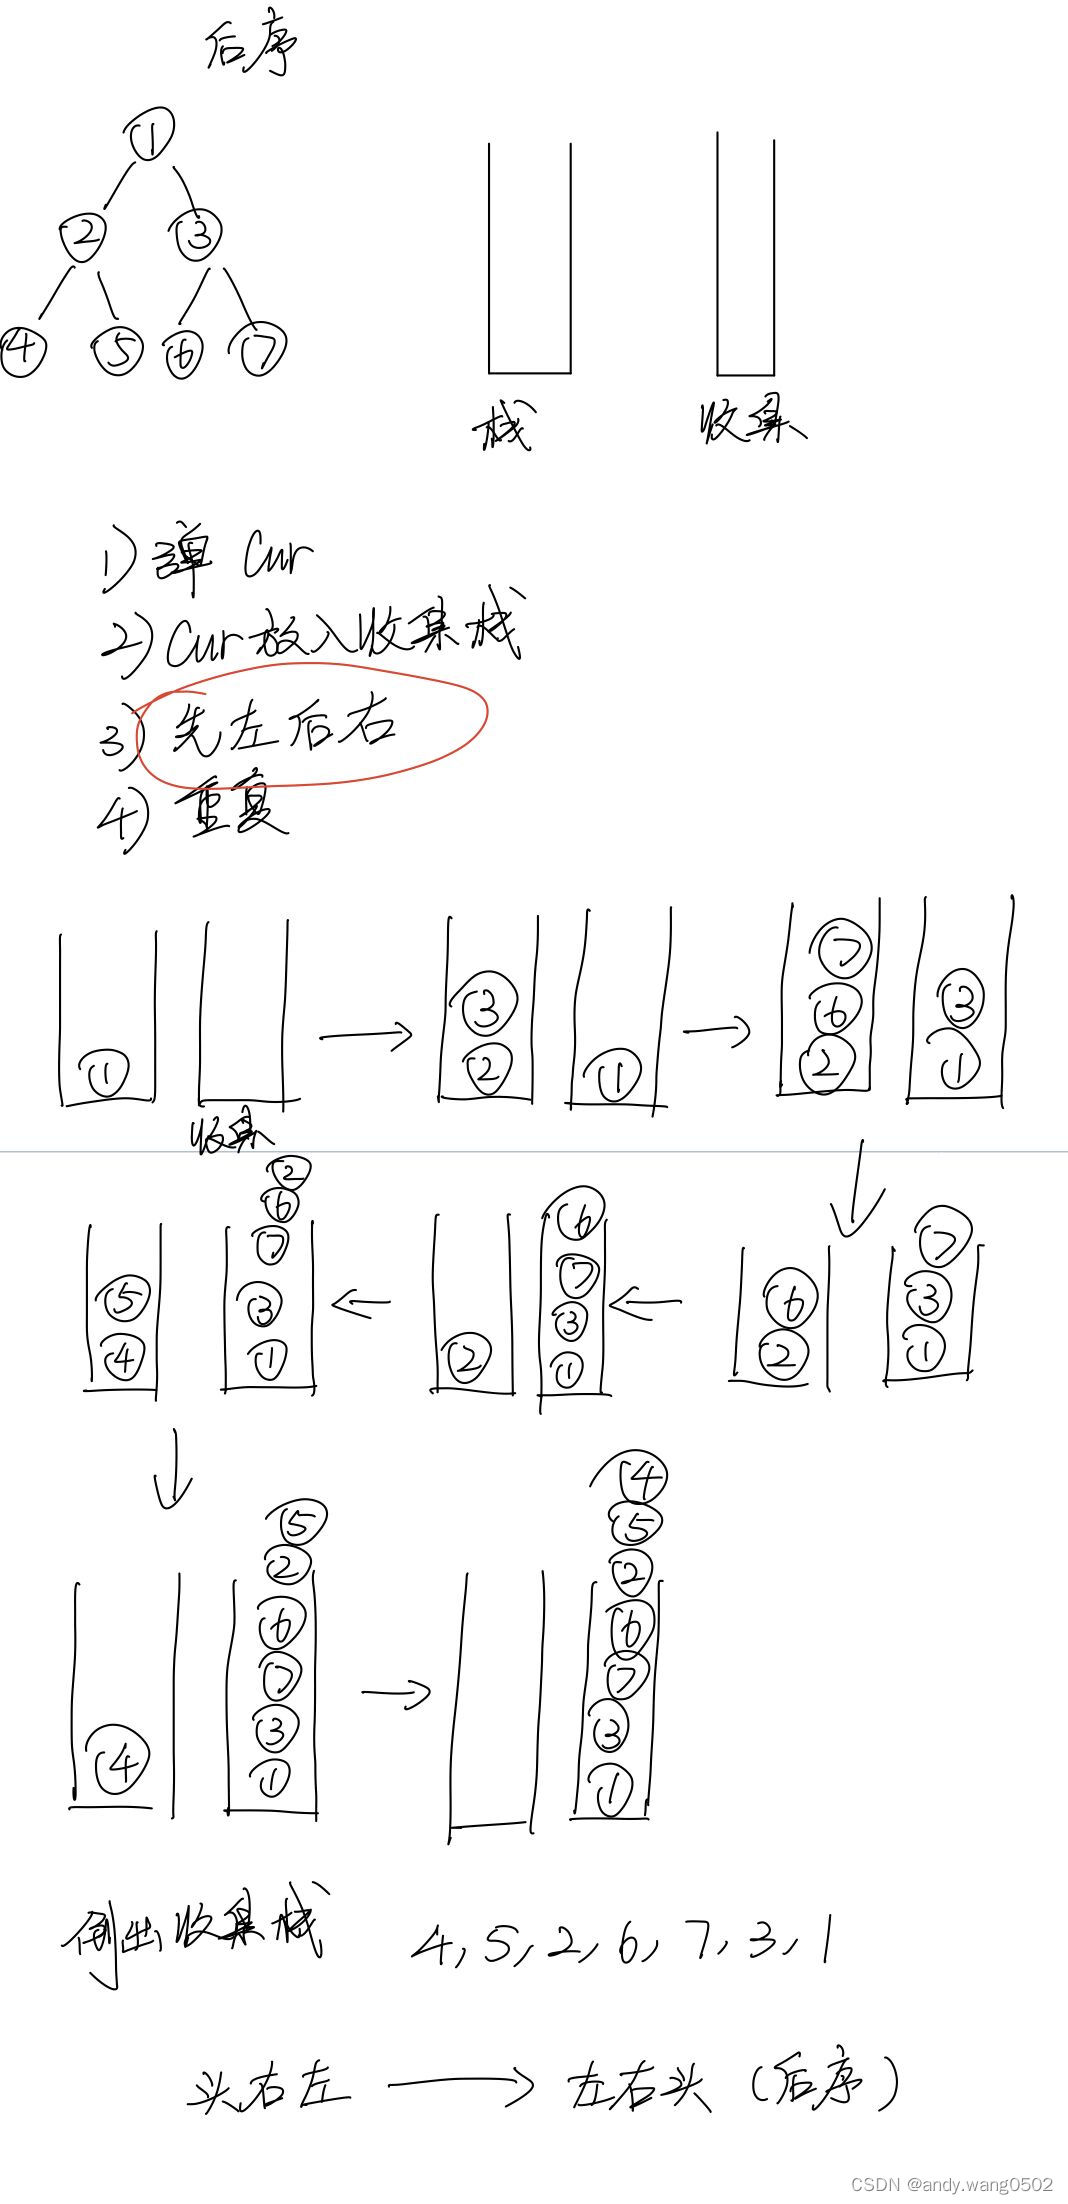 后序
①
② ③
④ ⑤ ⑥ ⑦
栈 收集
1) 弹 Cur
2) Cur放入收集栈
3) 先左后右
4) 重复
①
收集
③
②
①
⑦
⑥
②
③
①
⑥
②
⑦
③
①
②
⑥
⑦
③
①
⑤
④
②
⑥
⑦
③
①
④
⑤
②
⑥
⑦
③
①
④
⑤
②
⑥
⑦
③
①
倒出收集栈 4, 5, 2, 6, 7, 3, 1
头右左 → 左右头 (后序)
CSDN @andy.wang0502